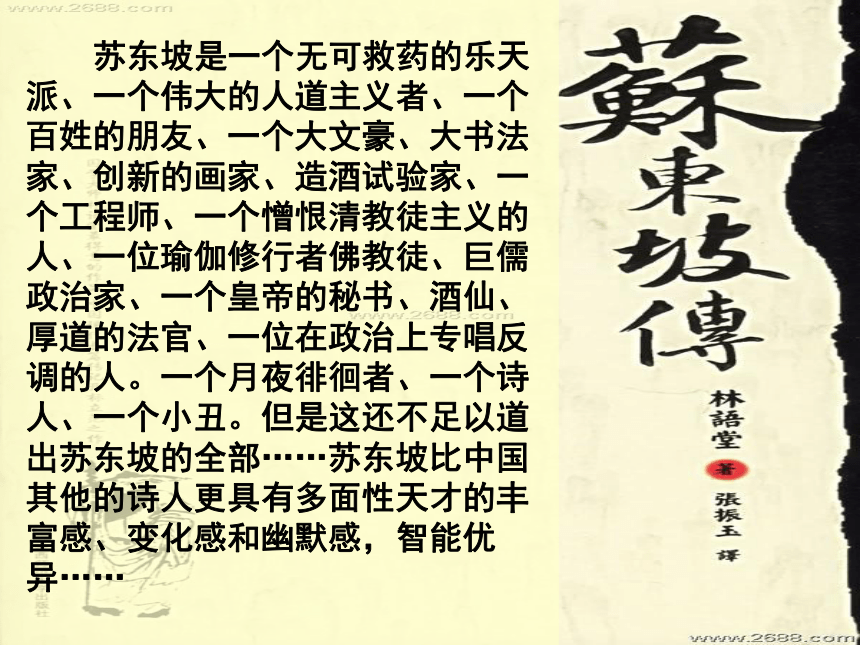 www.2688.com
苏东坡是一个无可救药的乐天
派、一个伟大的人道主义者、一个
百姓的朋友、一个大文豪、大书法
家、创新的画家、造酒试验家、一
个工程师、一个憎恨清教徒主义的
人、一位瑜伽修行者佛教徒、巨儒
政治家、一个皇帝的秘书、酒仙、
厚道的法官、一位在政治上专唱反
调的人。一个月夜徘徊者、一个诗
人、一个小丑。但是这还不足以道
出苏东坡的全部……苏东坡比中国
其他的诗人更具有多面性天才的丰
富感、变化感和幽默感，智能优
异……
蘇東坡傳
林語堂
著
張振玉 譯
www.2688.com
出版社
www.2688.com